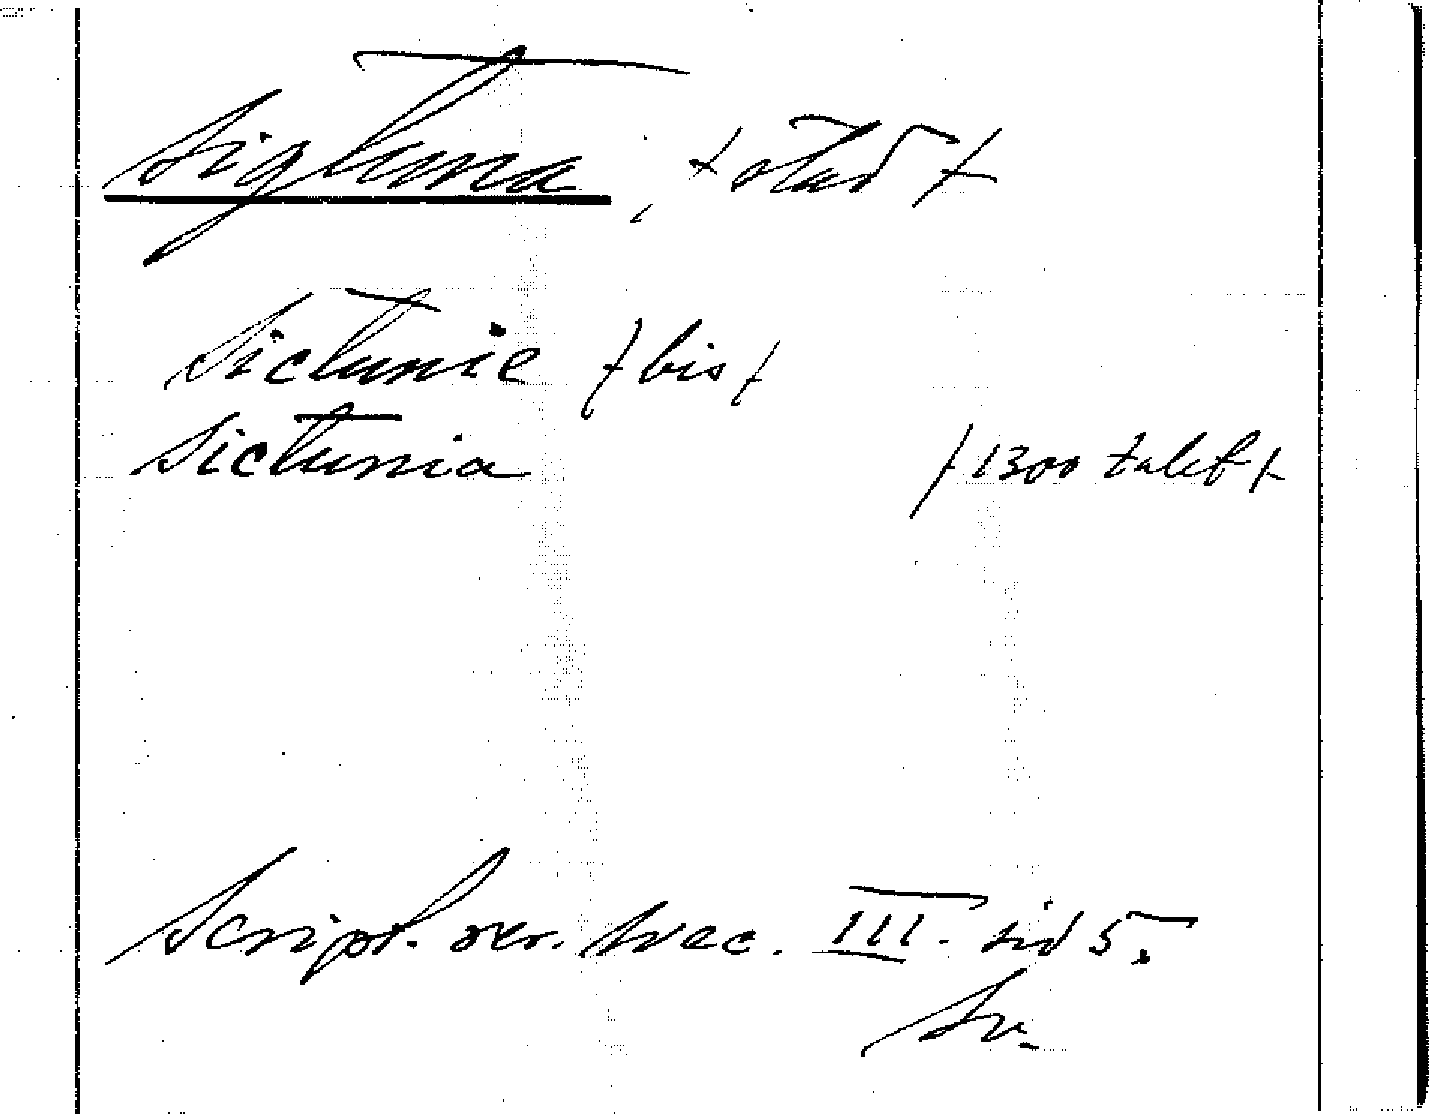 Sigtuna, † stad †
Sictunie † bis †
Sictunia
† 1300 talet †
Script. rer. Svec. III. sid 5.
Sv.